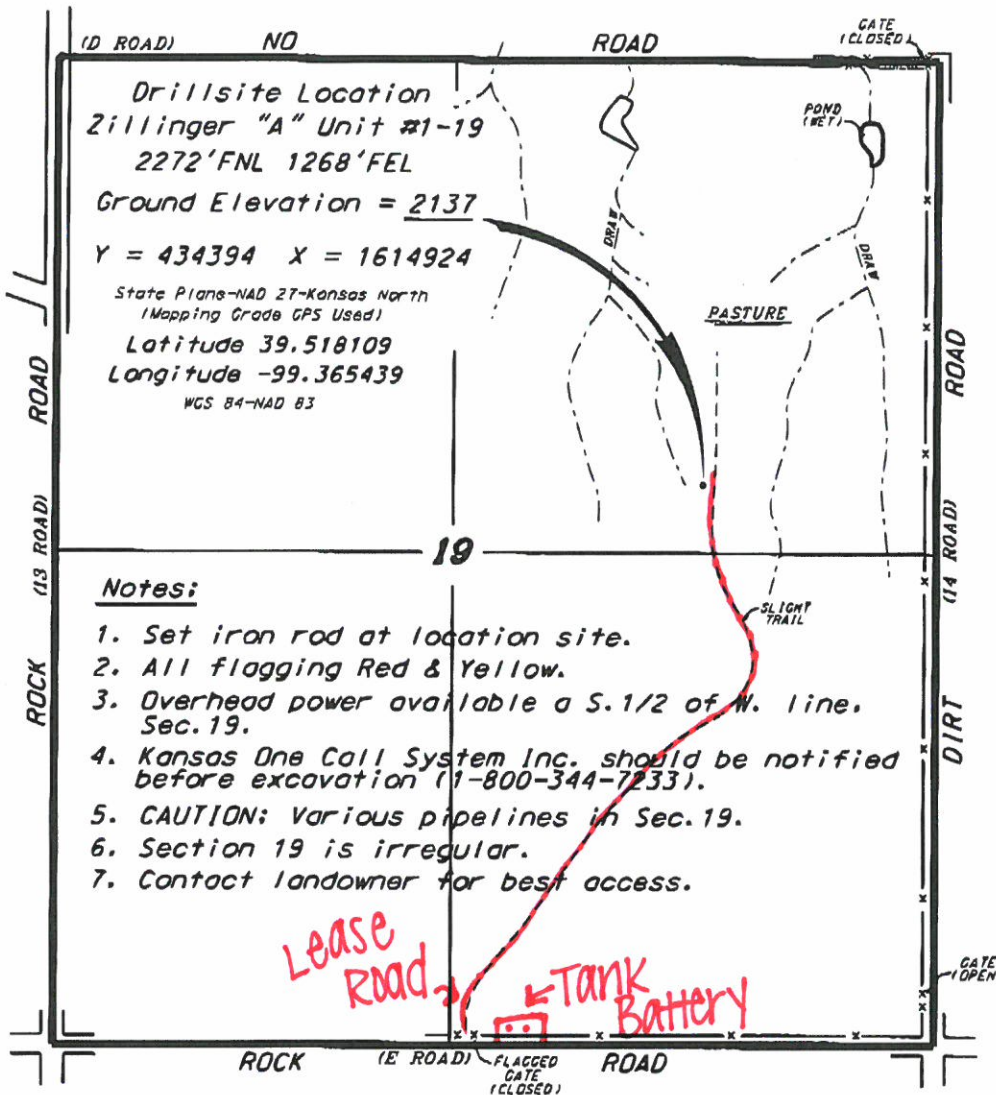 (D ROAD) NO ROAD
GATE
(CLOSED)
Drillsite Location
Zillinger "A" Unit #1-19
2272'FNL 1268'FEL
Ground Elevation = 2137
Y = 434394 X = 1614924
State Plane-NAD 27-Kansas North
(Mapping Grade GPS Used)
Latitude 39.518109
Longitude -99.365439
WGS 84-NAD 83
POND
(WET)
DRAW
DRAW
PASTURE
ROCK (13 ROAD) ROAD
DIRT (14 ROAD) ROAD
19
SLIGHT
TRAIL
Notes:
1. Set iron rod at location site.
2. All flagging Red & Yellow.
3. Overhead power available a S.1/2 of W. line.
Sec.19.
4. Kansas One Call System Inc. should be notified
before excavation (1-800-344-7233).
5. CAUTION: Various pipelines in Sec.19.
6. Section 19 is irregular.
7. Contact landowner for best access.
Lease
Road
Tank
Battery
GATE
(OPEN
ROCK (E ROAD) ROAD
FLAGGED
GATE
(CLOSED)